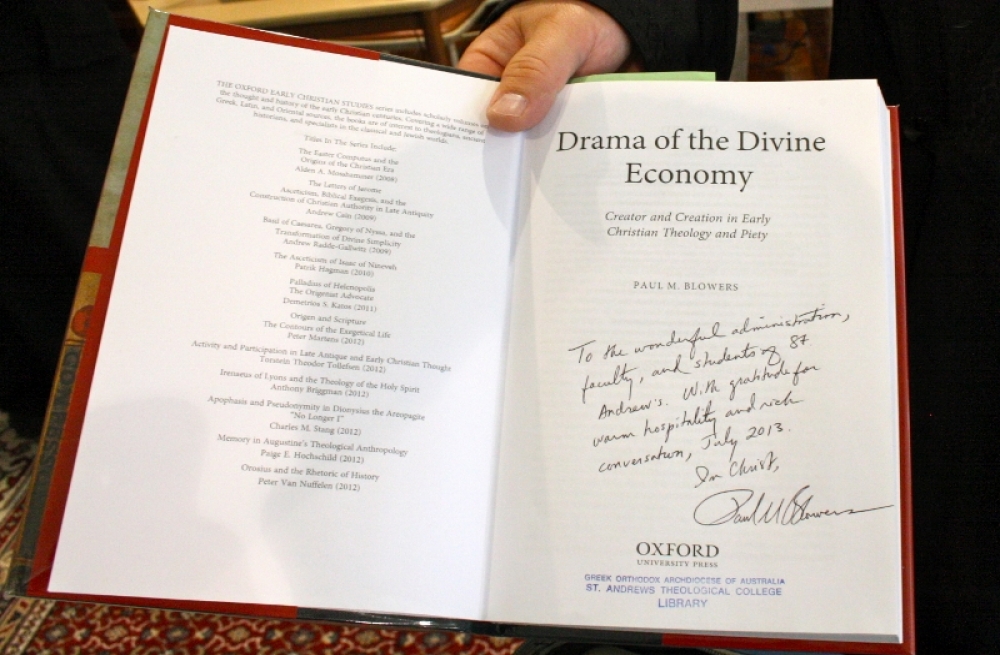 THE OXFORD EARLY CHRISTIAN STUDIES series includes scholarly volumes on
the thought and history of the early Christian centuries. Covering a wide range of
Greek, Latin, and Oriental sources, the books are of interest to theologians, ancient
historians, and specialists in the classical and Jewish worlds.
Titles In The Series Include:
The Easter Computus and the
Origins of the Christian Era
Alden A. Mosshammer (2008)
The Letters of Jerome
Asceticism, Biblical Exegesis, and the
Construction of Christian Authority in Late Antiquity
Andrew Cain (2009)
Basil of Caesarea, Gregory of Nyssa, and the
Transformation of Divine Simplicity
Andrew Radde-Gallwitz (2009)
The Asceticism of Isaac of Nineveh
Patrik Hagman (2010)
Palladius of Helenopolis
The Origenist Advocate
Demetrios S. Katos (2011)
Origen and Scripture
The Contours of the Exegetical Life
Peter Martens (2012)
Activity and Participation in Late Antique and Early Christian Thought
Torstein Theodor Tollefsen (2012)
Irenaeus of Lyons and the Theology of the Holy Spirit
Anthony Briggman (2012)
Apophasis and Pseudonymity in Dionysius the Areopagite
"No Longer I"
Charles M. Stang (2012)
Memory in Augustine's Theological Anthropology
Paige E. Hochschild (2012)
Orosius and the Rhetoric of History
Peter Van Nuffelen (2012)
Drama of the Divine
Economy
Creator and Creation in Early
Christian Theology and Piety
PAUL M. BLOWERS
To the wonderful administration,
faculty, and students of St
Andrew's. With gratitude for
warm hospitality and rich
conversation, July 2013.
In Christ,
Paul M Blowers
OXFORD
UNIVERSITY PRESS
GREEK ORTHODOX ARCHDIOCESE OF AUSTRALIA
ST. ANDREWS THEOLOGICAL COLLEGE
LIBRARY